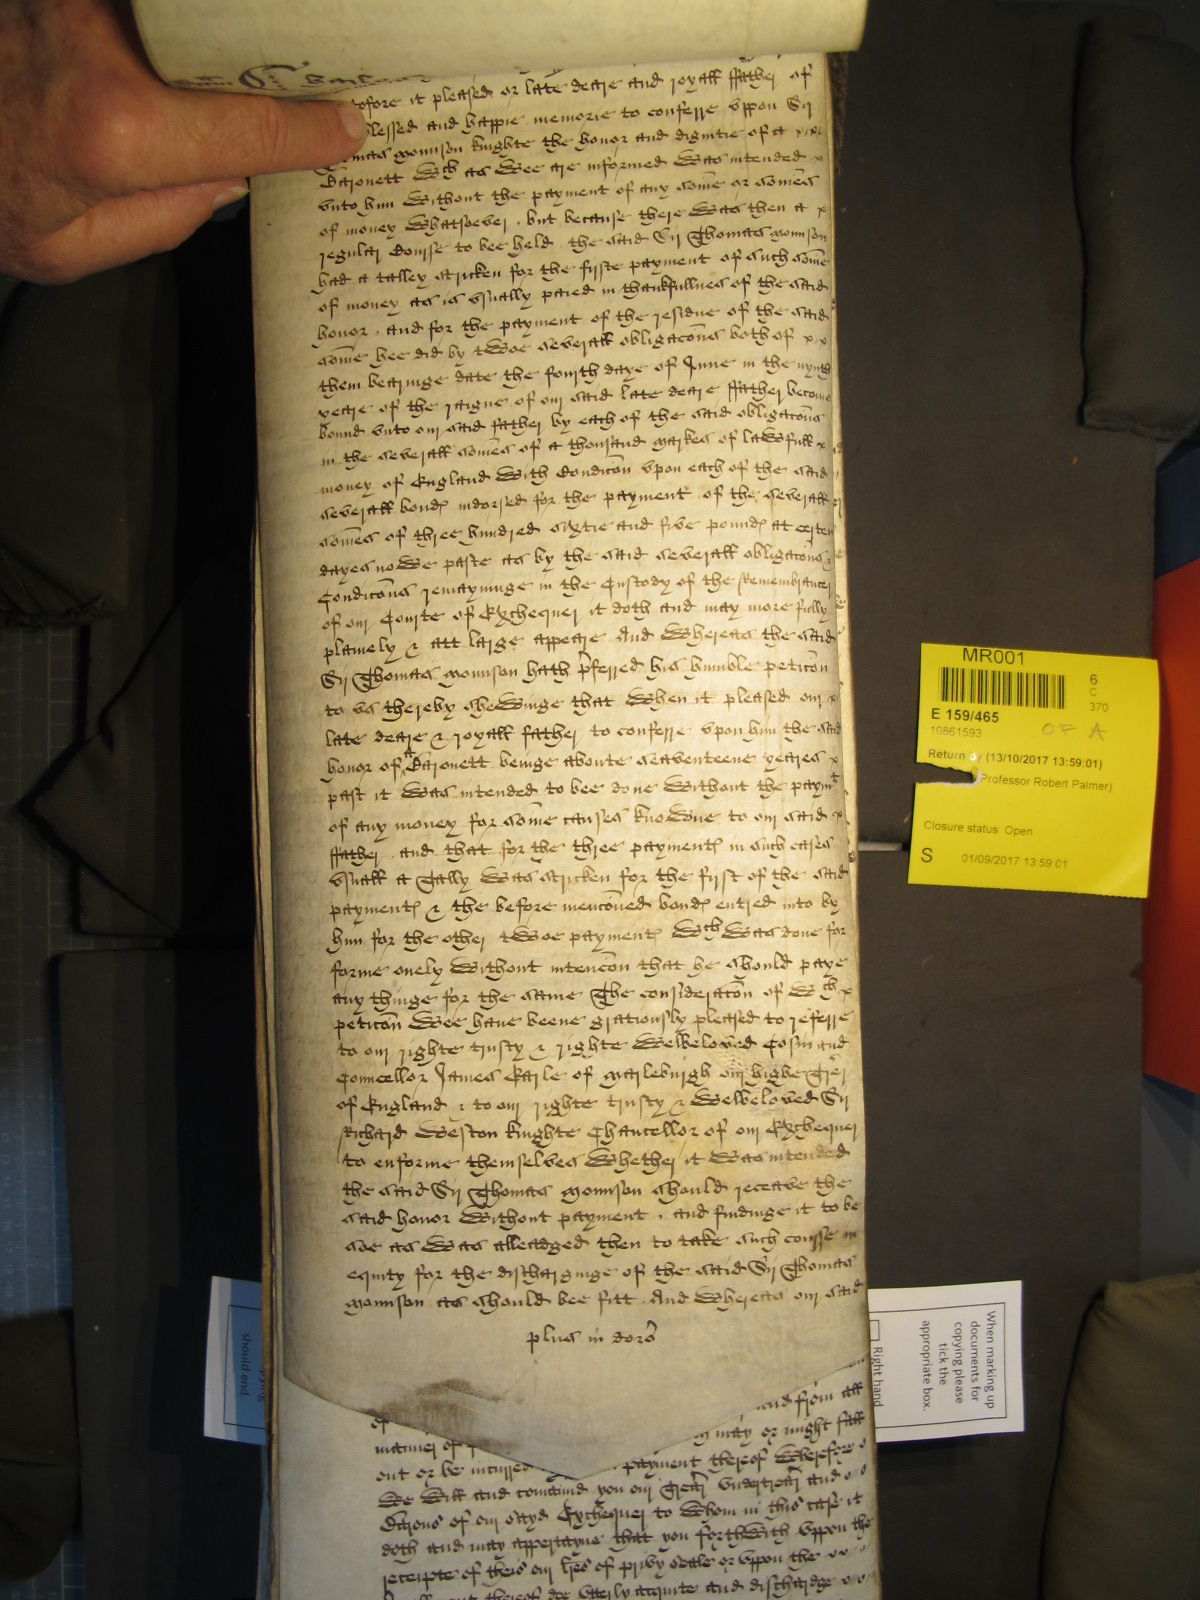 tofore it pleased or late deare and royall ffather of
blessed and happie memorie to conferre vppon Sir
Thomas Monnson knighte the honor and dignitie of a
Baronett Wch as Wee are informed Was intended
vnto him Without the payment of any some or somes
of money Whatsoever, but because there Was then a
regular Course to bee held the said Sir Thomas Monnson
had a talley stricken for the firste payment of such some
of money as is vsually paied in thankfullnes of the said
honor, and for the payment of the residue of the said
some hee did by tWoe severall obligacons both of
them bearinge date the fourth daye of June in the nynth
yeare of the raigne of our said late deare ffather become
bound vnto our said father by each of the said obligacons
in the severall somes of a thousand markes of laWfull
money of England With Condicon vpon each of the said
severall bonds indorsed for the payment of the severall
somes of three hundred sixtie and five pounds at certen
dayes noWe paste as by the said severall obligacons &
Condicons remayninge in the Custody of the Remembrancer
of our Courte of Exchequer it doth and may more fully
plainely & att large appeare And Whereas the said
Sir Thomas Monnson hath pferred his humble peticon
to vs thereby sheWinge that When it pleased our
late deare & royall father to conferre vpon him the said
honor of a Baronett beinge aboute seaventeene yeares
past it Was intended to bee done Without the paymt
of any money for some causes knoWne to our said
ffather, and that for the three payments in such cases
vsuall a Tally Was stricken for the first of the said
payments & the before menconed bonds entred into by
him for the other tWoe payments Wch Was done for
forme onely Without intencon that he should paye
any thinge for the same The consideracon of Wch
peticon Wee have beene gratiously pleased to referre
to our righte trusty & righte Welbeloved Cosin and
Councellor James Earle of Marleburgh our highe Trer
of England & to our righte trusty & Welbeloved Sir
Richard Weston knighte Chancellor of our Exchequer
to enforme themselves Whether it Was intended
the said Sir Thomas Monnson should receave the
said honor Without payment, and findinge it to be
soe as Was alleadged then to take such course in
equity for the discharginge of the said Sir Thomas
Monnson as should bee fitt And Whereas our said
plus in doro
and from all
of
manner of may or might fall
out or be incurred payment thereof Wherefore
We Will and comaund you our Trer Vndertrer and
Barons of our sayd Exchequer to Whom in this case it
doth and may appertayne that you forthWith vppon the
receipte of theis our lres of privy seale or vppon the
thereof doe vtterly acquite and dischardge
MR001
6
C
370
E 159/465
10861593
OF A
Return by (13/10/2017 13:59:01)
(Professor Robert Palmer)
Closure status Open
S
01/09/2017 13:59:01
When marking up
documents for
copying please
tick the
appropriate box.
Right hand
should end.